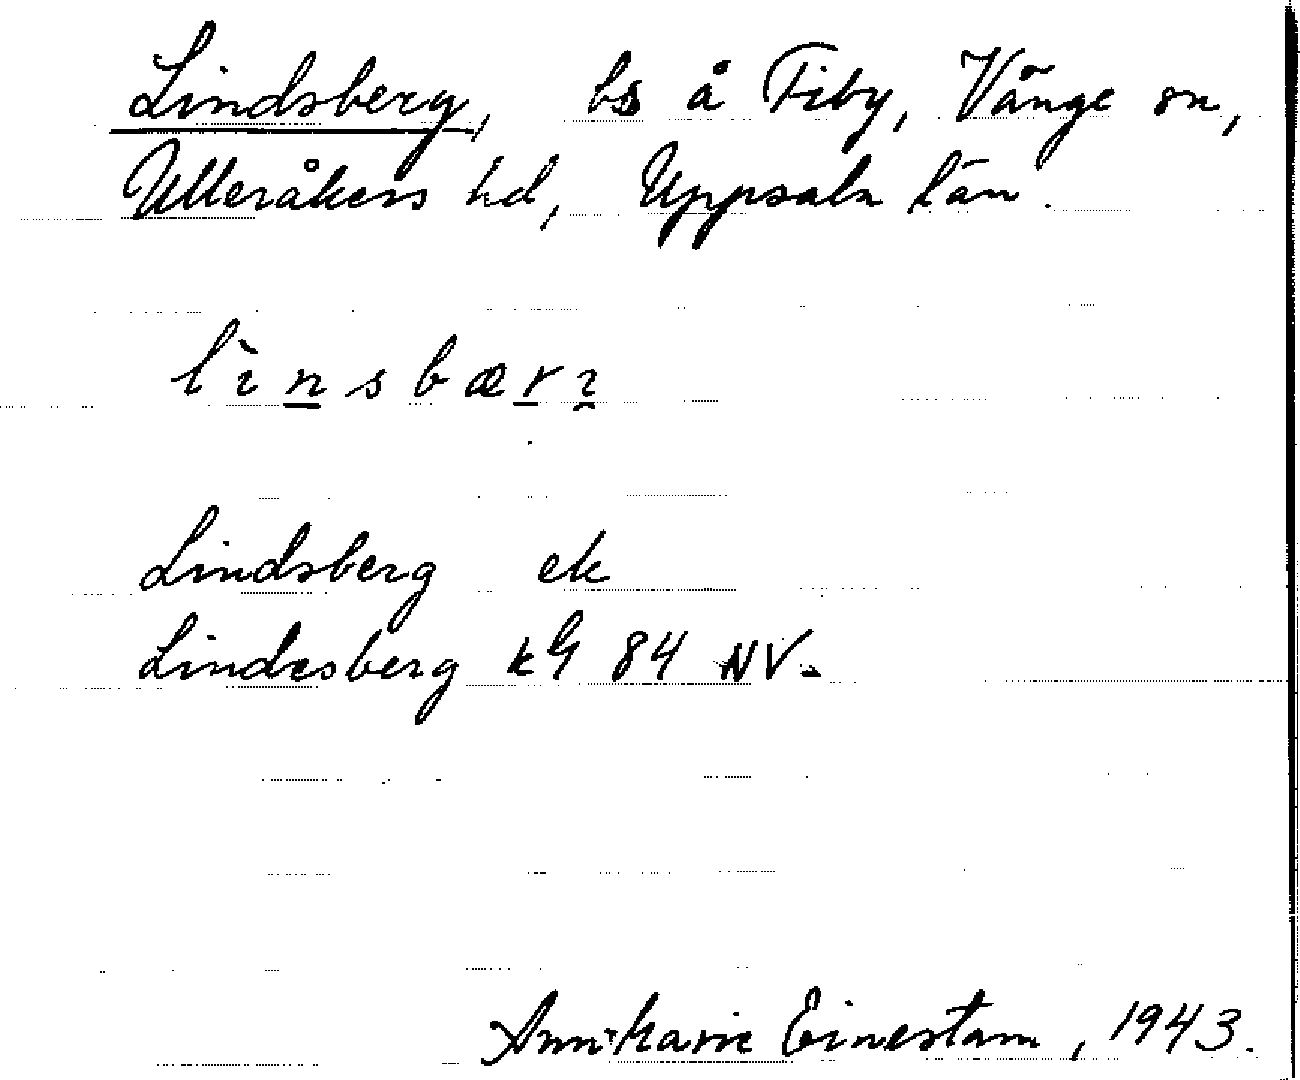 Lindsberg, bs å Fiby, Vänge sn,
Ulleråkers hd, Uppsala län.
lìnsbærɿ
Lindsberg ek
Lindesberg kG 84 NV.
Einestam, 1943.